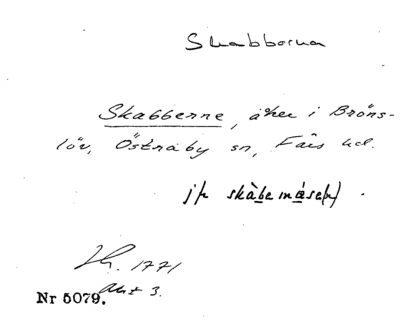 Skabborna
Skabberne, åker i Bröns-
löv, Östraby sn, Färs hd.
jfr skàbemáse(n) .
Lh. 1771
Akt 3.
Nr 5079.